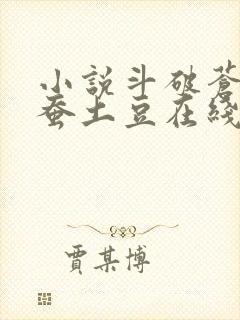 小説斗破蒼
蚕土豆在綫
賈某博